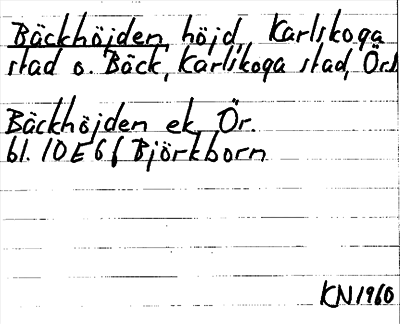 Bäckhöjden, höjd, Karlskoga
stad o. Bäck, Karlskoga stad, Ör.
Bäckhöjden ek, Ör.
bl. 10E6f Björkborn
KN1960